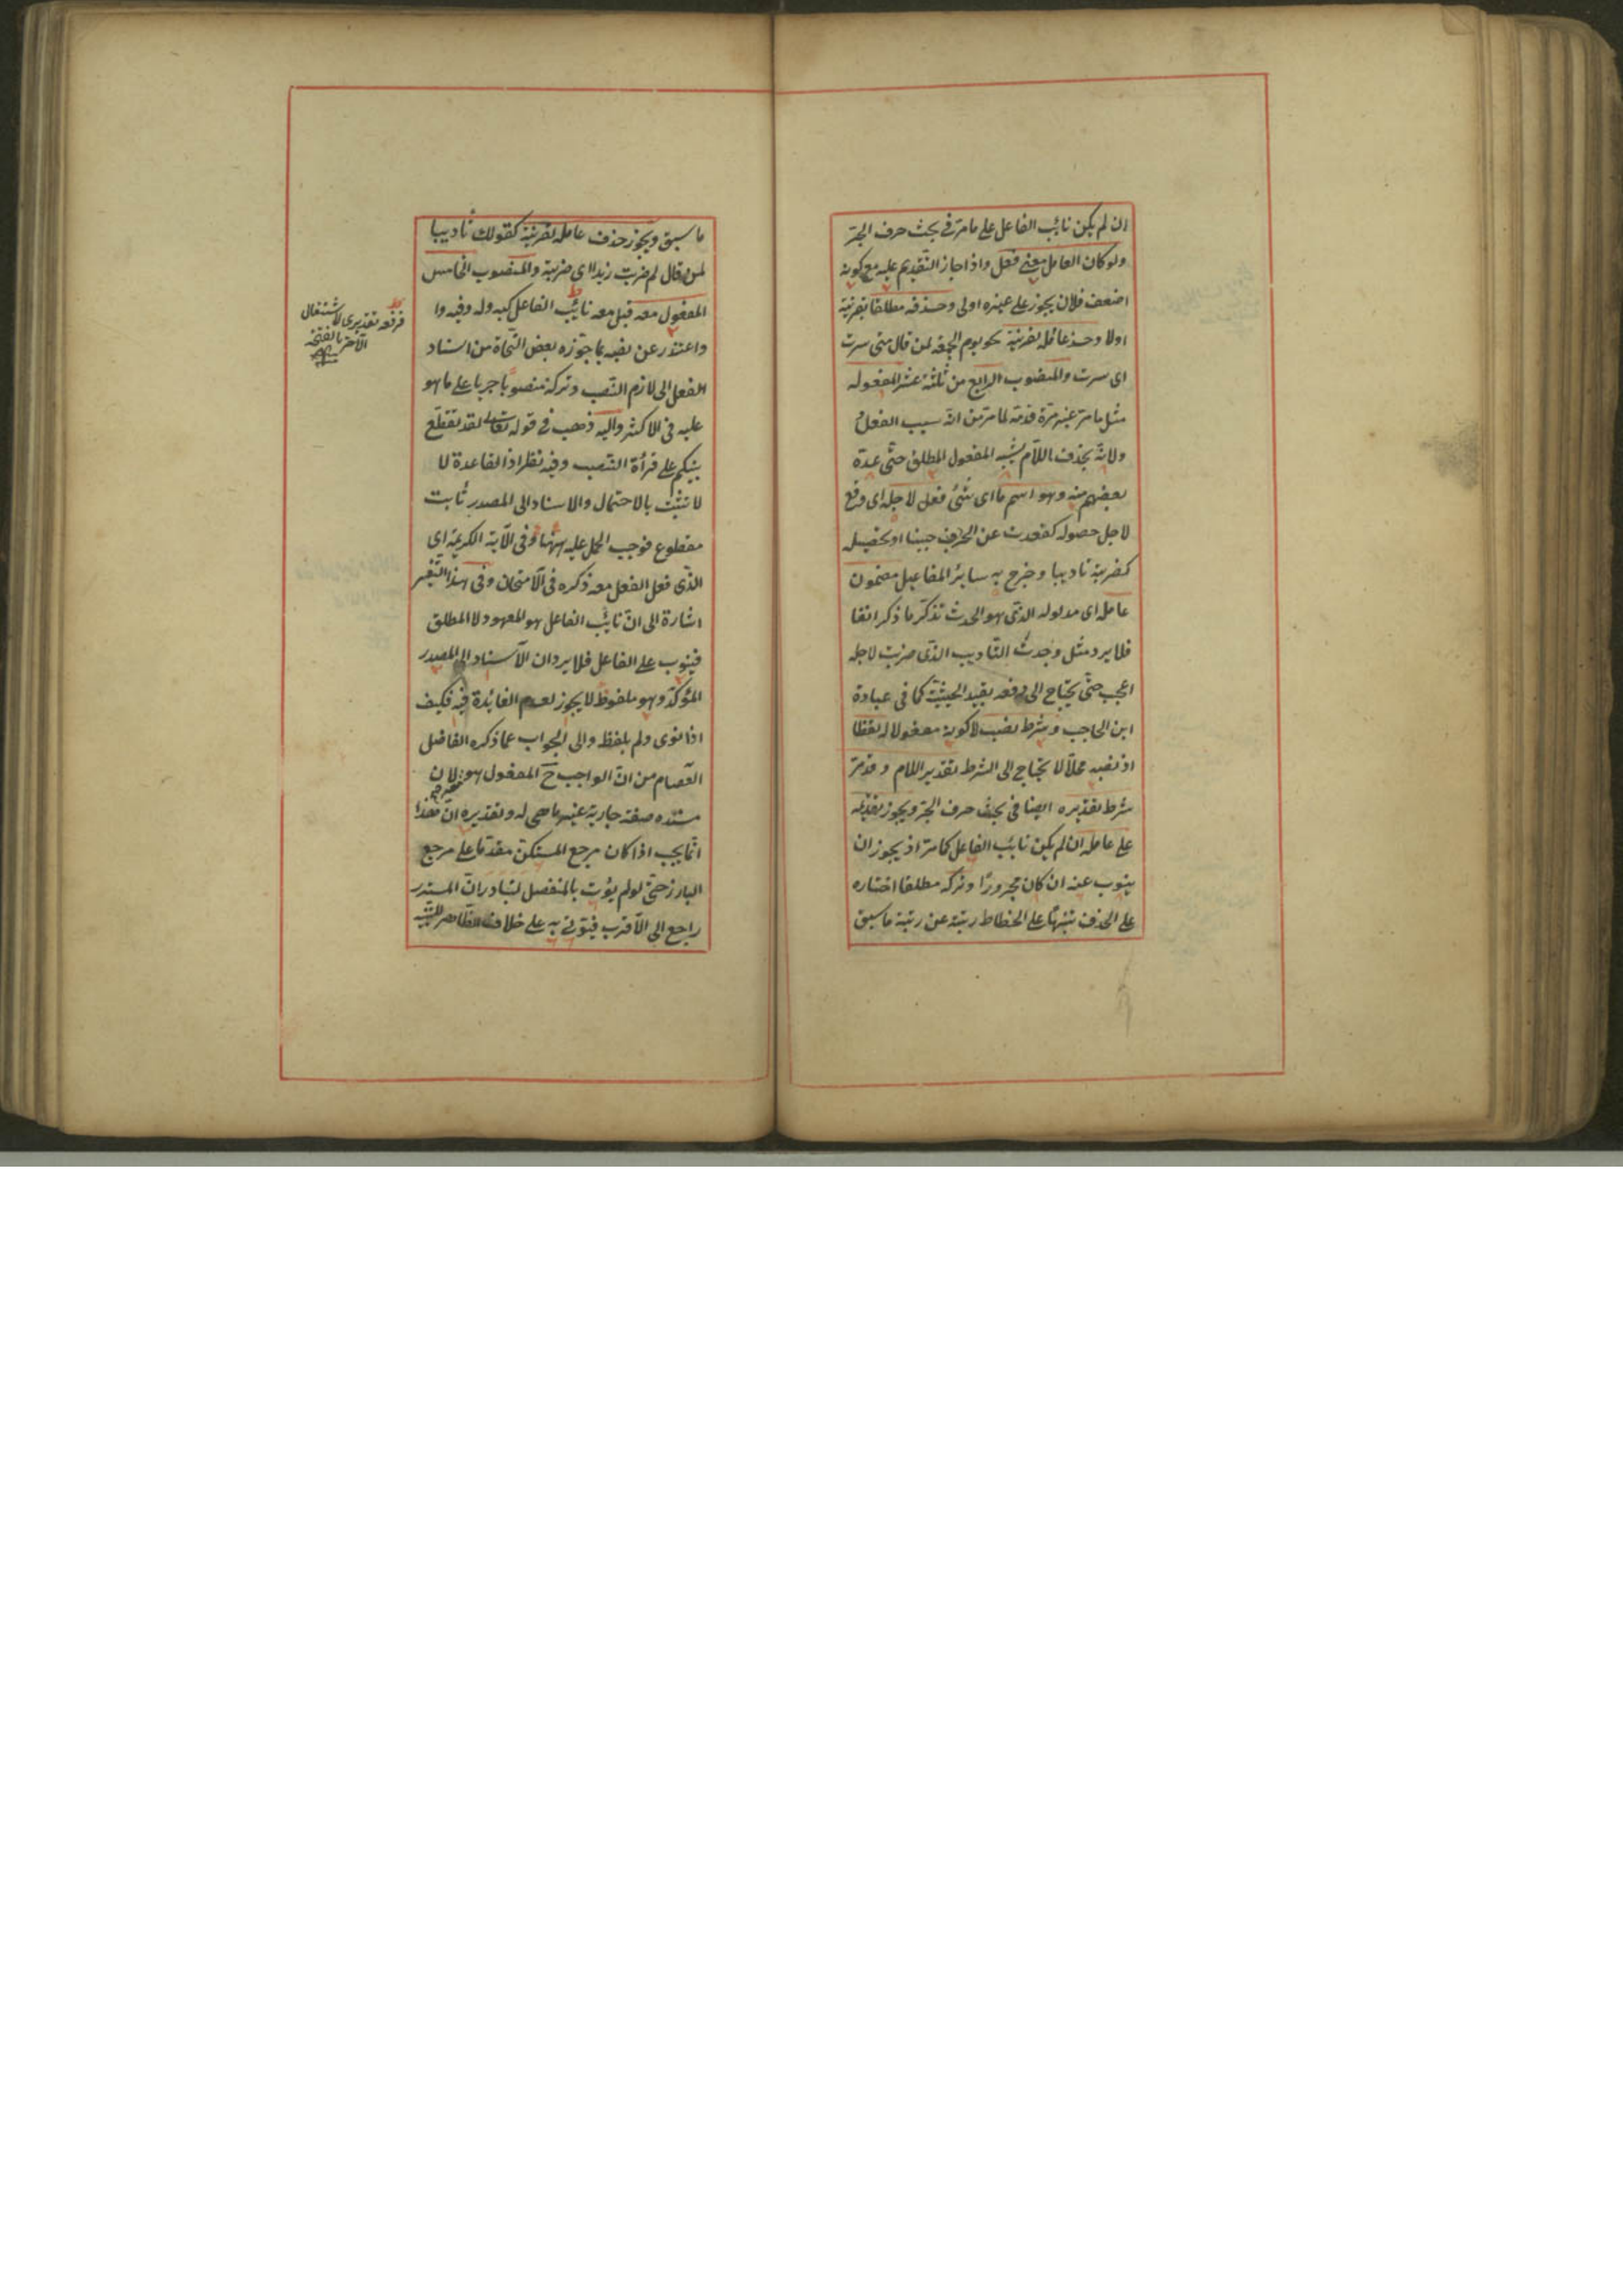 ان لم يكن نائب الفاعل على ما مر فى بحث حرف الجر
ولو كان العامل معنى فعل واذا جاز التقديم عليه مع كونه
اضعف فلان يجوز على غيره اولى وحذفه مطلقا بقرينة
اولا وحذف عامله لقرينة نحو يوم الجمعة لمن قال متى سرت
اى سرت والمنصوب الرابع من ثلثة عشر المفعول له
مثل ما مر غير مرة قدمه لما مر من انه سبب الفعل
ولانه بحذف اللام يشبه المفعول المطلق حتى عده
بعضهم منه وهو اسم ما اى شئ فعل لاجله اى وقع
لاجل حصوله كقعدت عن الحرب جبنا او تحصيله
كضربته تاديبا وخرج به سائر المفاعيل مضمون
عامله اى مدلوله الذى هو الحدث تذكر ما ذكر انفا
فلا يرد مثل وجدت التاديب الذى ضربت لاجله
اعجب حتى يحتاج الى دفعه بقيد الحيثية كما فى عبارة
ابن الحاجب وشرط نصبه لا كونه مفعولا له لفظا
اذ نصبه محلا لا يحتاج الى الشرط تقدير اللام وقد مر
شرط تقديره ايضا فى بحث حرف الجر ويجوز تقديمه
على عامله ان لم يكن نائب الفاعل كما مر اذ يجوز ان
ينوب عنه ان كان مجرورا وتركه مطلقا اختاره
على الحذف تنبيها على انحطاط رتبته عن رتبة ما سبق
ما سبق ويجوز حذف عامله لقرينة كقولك تاديبا
لمن قال لم ضربت زيدا اى ضربته والمنصوب الخامس
المفعول معه قيل معه نائب الفاعل كبه وله وفيه وا
واعتذر عن نصبه بما جوزه بعض النحاة من اسناد
الفعل الى لازم النصب وتركه منصوبا جريا على ما هو
عليه فى الاكثر واليه ذهب فى قوله تعالى لقد تقطع
بينكم على قرأة النصب وفيه نظر اذ القاعدة لا
لا تثبت بالاحتمال والاسناد الى المصدر ثابت
مقطوع فوجب الحمل عليه ههنا وفى الآية الكريمة اى
الذى فعل الفعل معه ذكره فى الامتحان وفى هذا التفسير
اشارة الى ان نائب الفاعل هو المعهود لا المطلق
فينوب على الفاعل فلا يرد ان الاسناد الى المصدر
المؤكد وهو ملفوظ لا يجوز لعدم الفائدة فيه فكيف
اذا نوى ولم يلفظ والى الجواب عما ذكره الفاضل
العصام من ان الواجب ح المفعول هو لان
مسنده صفة جارية غير ما هى له وتقديره ان هذا
انما يجب اذا كان مرجع المستكن مقدما على مرجع
البارز حتى لو لم يؤت بالمنفصل لتبادر ان المستتر
راجع الى الاقرب فيؤتى به على خلاف الظاهر
فرفعه تقديرى لاشتغال
الآخر بالفتحة